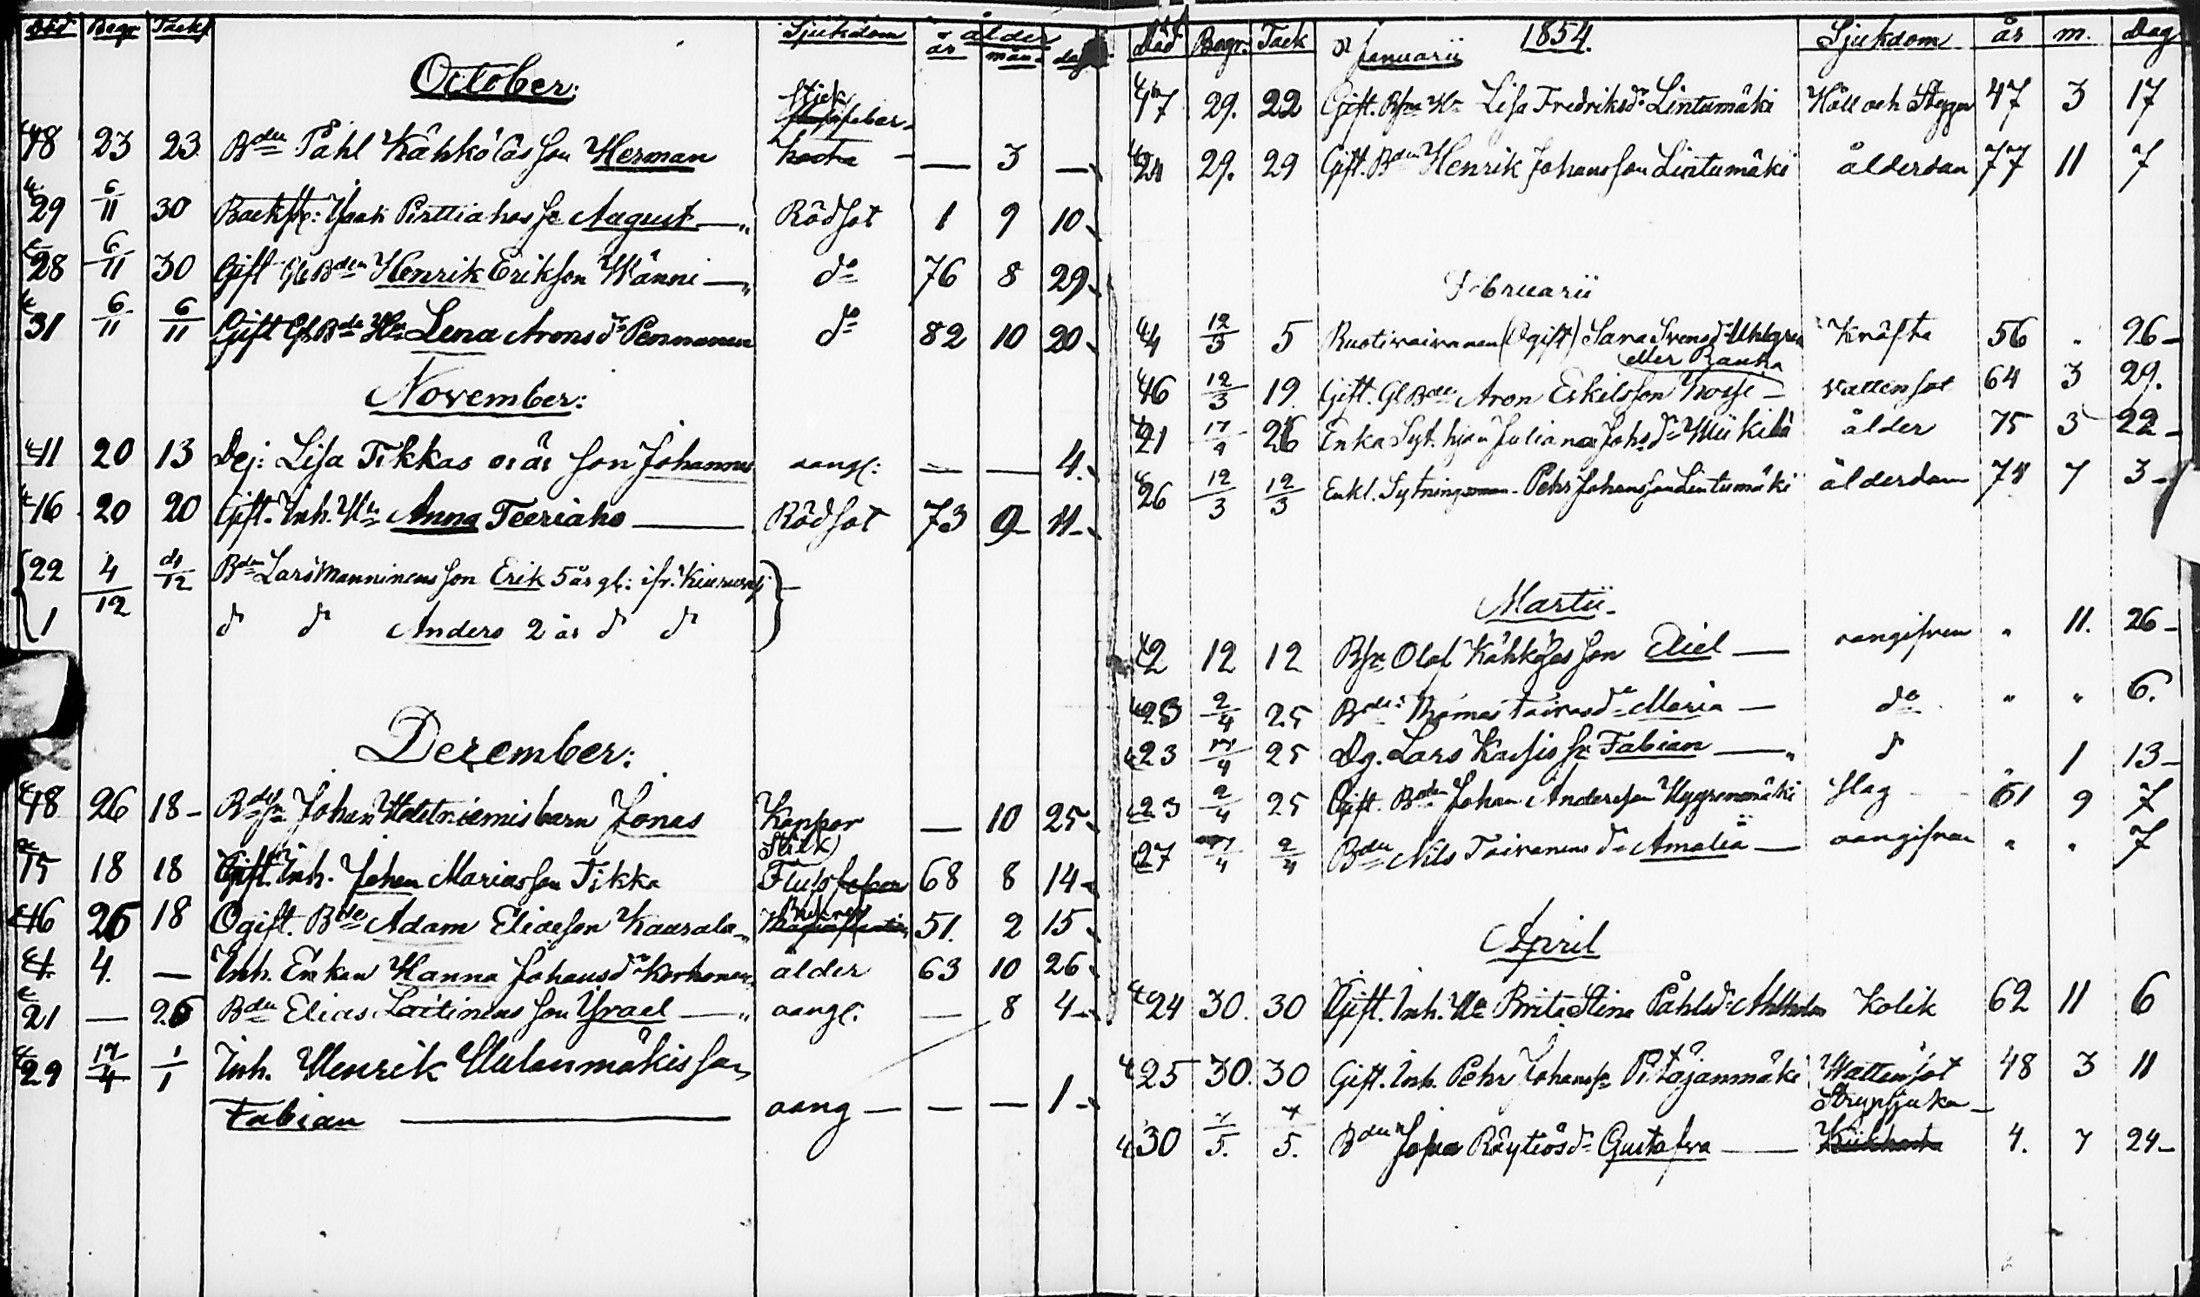 Död Begr Tacks. Sjukdom ålder
år mån. dag
October:
Stick
18 23 23 Bdn Påhl Kähkölas son Herman hosta — — 3 —
29 6/11 30 Backst: Isaak Pirttiahos sn August — Rödsot 1 9 10
28 6/11 30 Gift Gl Bdn Henrik Erikson Wänni — do 76 8 29
31 6/11 6/11 Gift Gl Bde Hu Lena Arons dr Pennanen do 82 10 20
November:
11 20 13 Dej: Lisa Tikkas oä son Johannes oangf: — — 4
16 20 20 Gift. Inh. Hu Anna Teeriaho — Rödsot 73 9 11
22 4/12 4/12 Bdn Lars Manninens son Erik 5 år gl: ifr.
1 d d Anders 2 år d d
December:
18 26 18 Johan barn Jonas Koppor — 10 25
Stick
15 18 18 Gift. Inh. Johan Mariasson Tikka Fluss 68 8 14
16 26 18 Ogift. Bde Adam Eliasson Kaurala 51. 2 15
4. 4. — Inh. Enkan Hanna Johansdr Korhonen ålder 63 10 26
21 — 26 Bdn Elias Laitinens son Israel — oangf. — 8 4
29 17/4 1/1 Inh. Henrik Aulanmäkis son
Fabian — oang — — — 1
Död Begr. Tack Januarii 1854. Sjukdom år m. Dag
17 29. 22 Gift. Hu Lisa Fredriksdr Lintumäki Håll och Stygn 47 3 17
24 29. 29 Gift. Bdn Henrik Johansson Lintumäki ålderdom 77 11 7
Februarii
4 12/3 5 Ruotivaivanen (Ogift) Sara Svensdr Uhlgren Kräfta 56 . 26
eller Rauha
16 12/3 19 Gift. Gl Bde Aron Eskilsson — Vattensot 64 3 29.
21 17/4 26 Enka Syt. hjon Juliana Johsdr ålder 75 3 22
26 12/3 12/3 Enkl. Sytningsman Pehr Johansson Lintumäki ålderdom 74 7 3
Martii
2 12 12 Olof Kähkölas son Eliel — oangifven " 11. 26
23 2/4 25 Bdn Thomas Taivas dr Maria — do " " 6.
23 17/4 25 Dg. Lars sn Fabian — d " 1 13
23 2/4 25 Gift. Bdn Johan Andersson Slag 61 9 7
27 17/4 2/4 Bdn Nils Taivanens dr Amalia — oangifven " " 7
April
24 30. 30 Gift. Inh. Hu Brita Stina Påhlsdr Kolik 62 11 6
25 30. 30 Gift. Inh. Pehr Johanss. Pitäjänmäki Wattensot 48 3 11
Strypsjuka
30 7/5. 7/5. Bdn Röytiös dr Gustafva — 4. 7 24